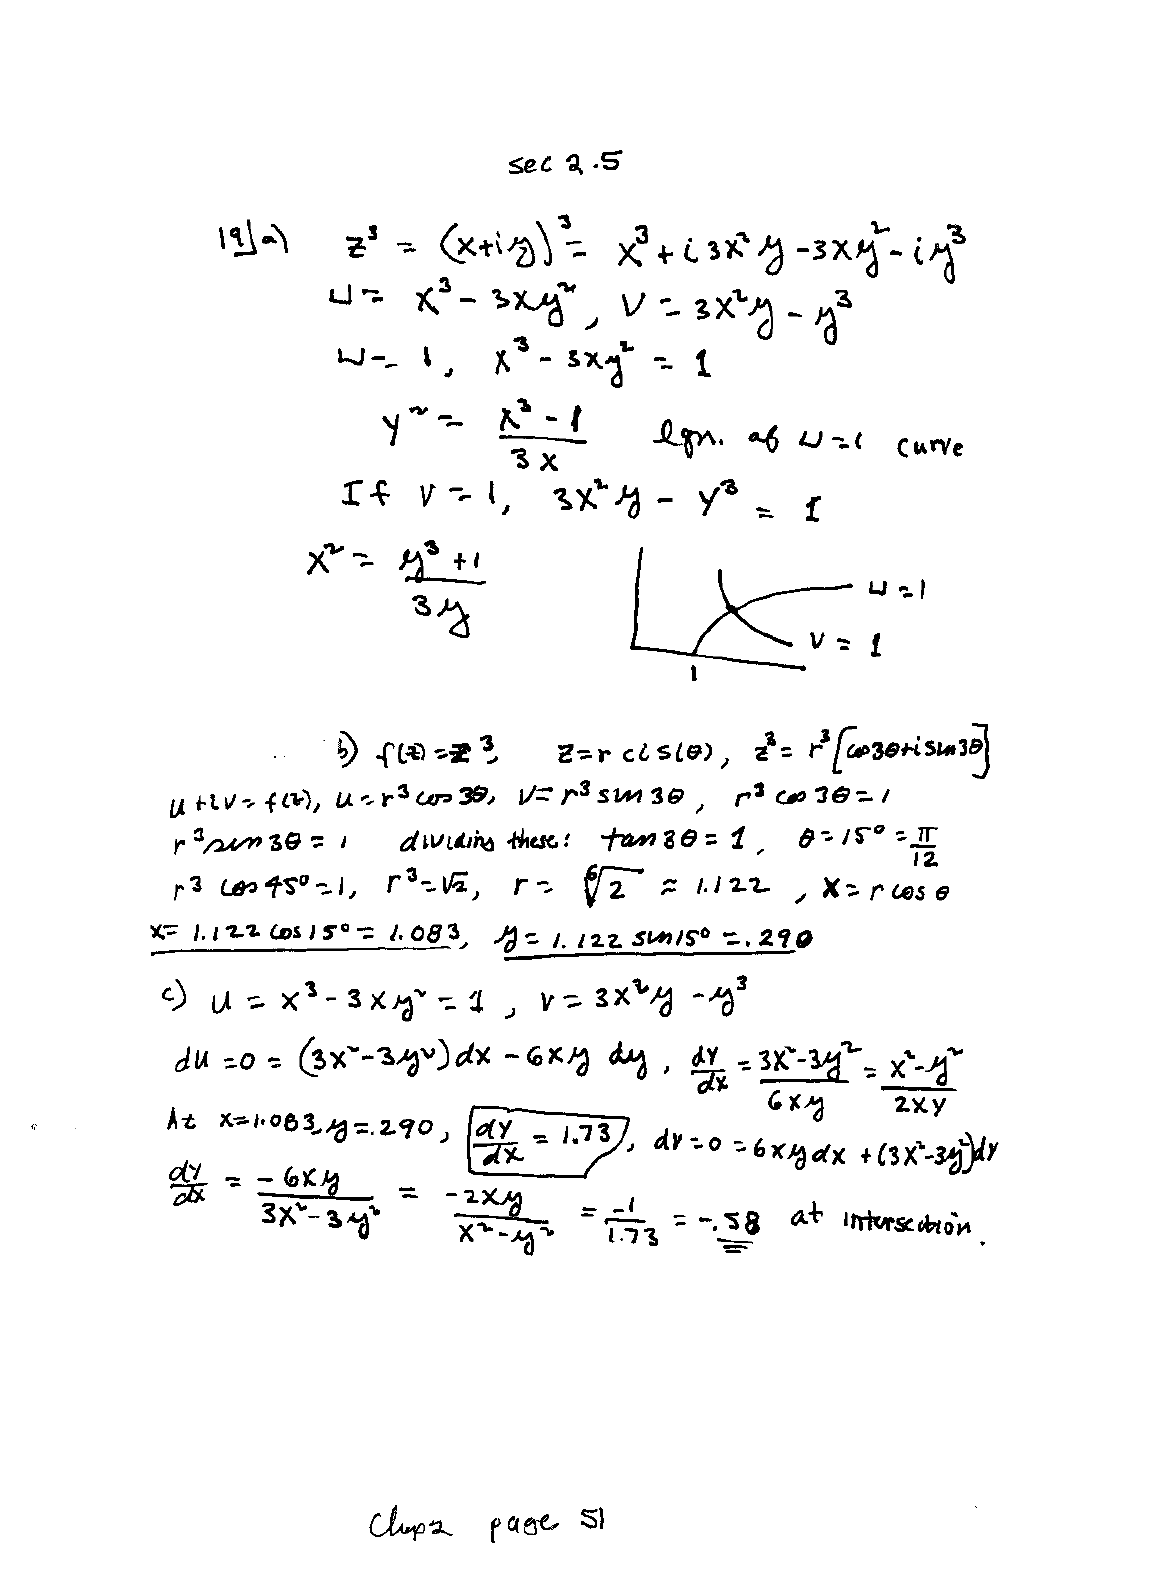 sec 2.5
19] a) z³ = (x+iy)³ = x³ + i3x²y - 3xy² - iy³
u = x³ - 3xy², v = 3x²y - y³
u = 1, x³ - 3xy² = 1
y² = (x³ - 1)/(3x) eqn. of u=1 curve
If v = 1, 3x²y - y³ = 1
x² = (y³ + 1)/(3y)
u = 1
v = 1
1
b) f(z) = z³, z = r cis(θ), z³ = r³[cos3θ + i sin3θ]
u + iv = f(z), u = r³ cos 3θ, v = r³ sin 3θ, r³ cos 3θ = 1
r³ sin 3θ = 1 dividing these: tan 3θ = 1, θ = 15° = π/12
r³ cos 45° = 1, r³ = √2, r = ⁶√2 ≈ 1.122, x = r cos θ
x = 1.122 cos 15° = 1.083, y = 1.122 sin 15° = .290
c) u = x³ - 3xy² = 1, v = 3x²y - y³
du = 0 = (3x² - 3y²)dx - 6xy dy, dy/dx = (3x² - 3y²)/(6xy) = (x² - y²)/(2xy)
At x = 1.083, y = .290, dy/dx = 1.73, dv = 0 = 6xy dx + (3x² - 3y²)dy
dy/dx = -6xy/(3x² - 3y²) = -2xy/(x² - y²) = -1/1.73 = -.58 at intersection.
Chap2 page 51